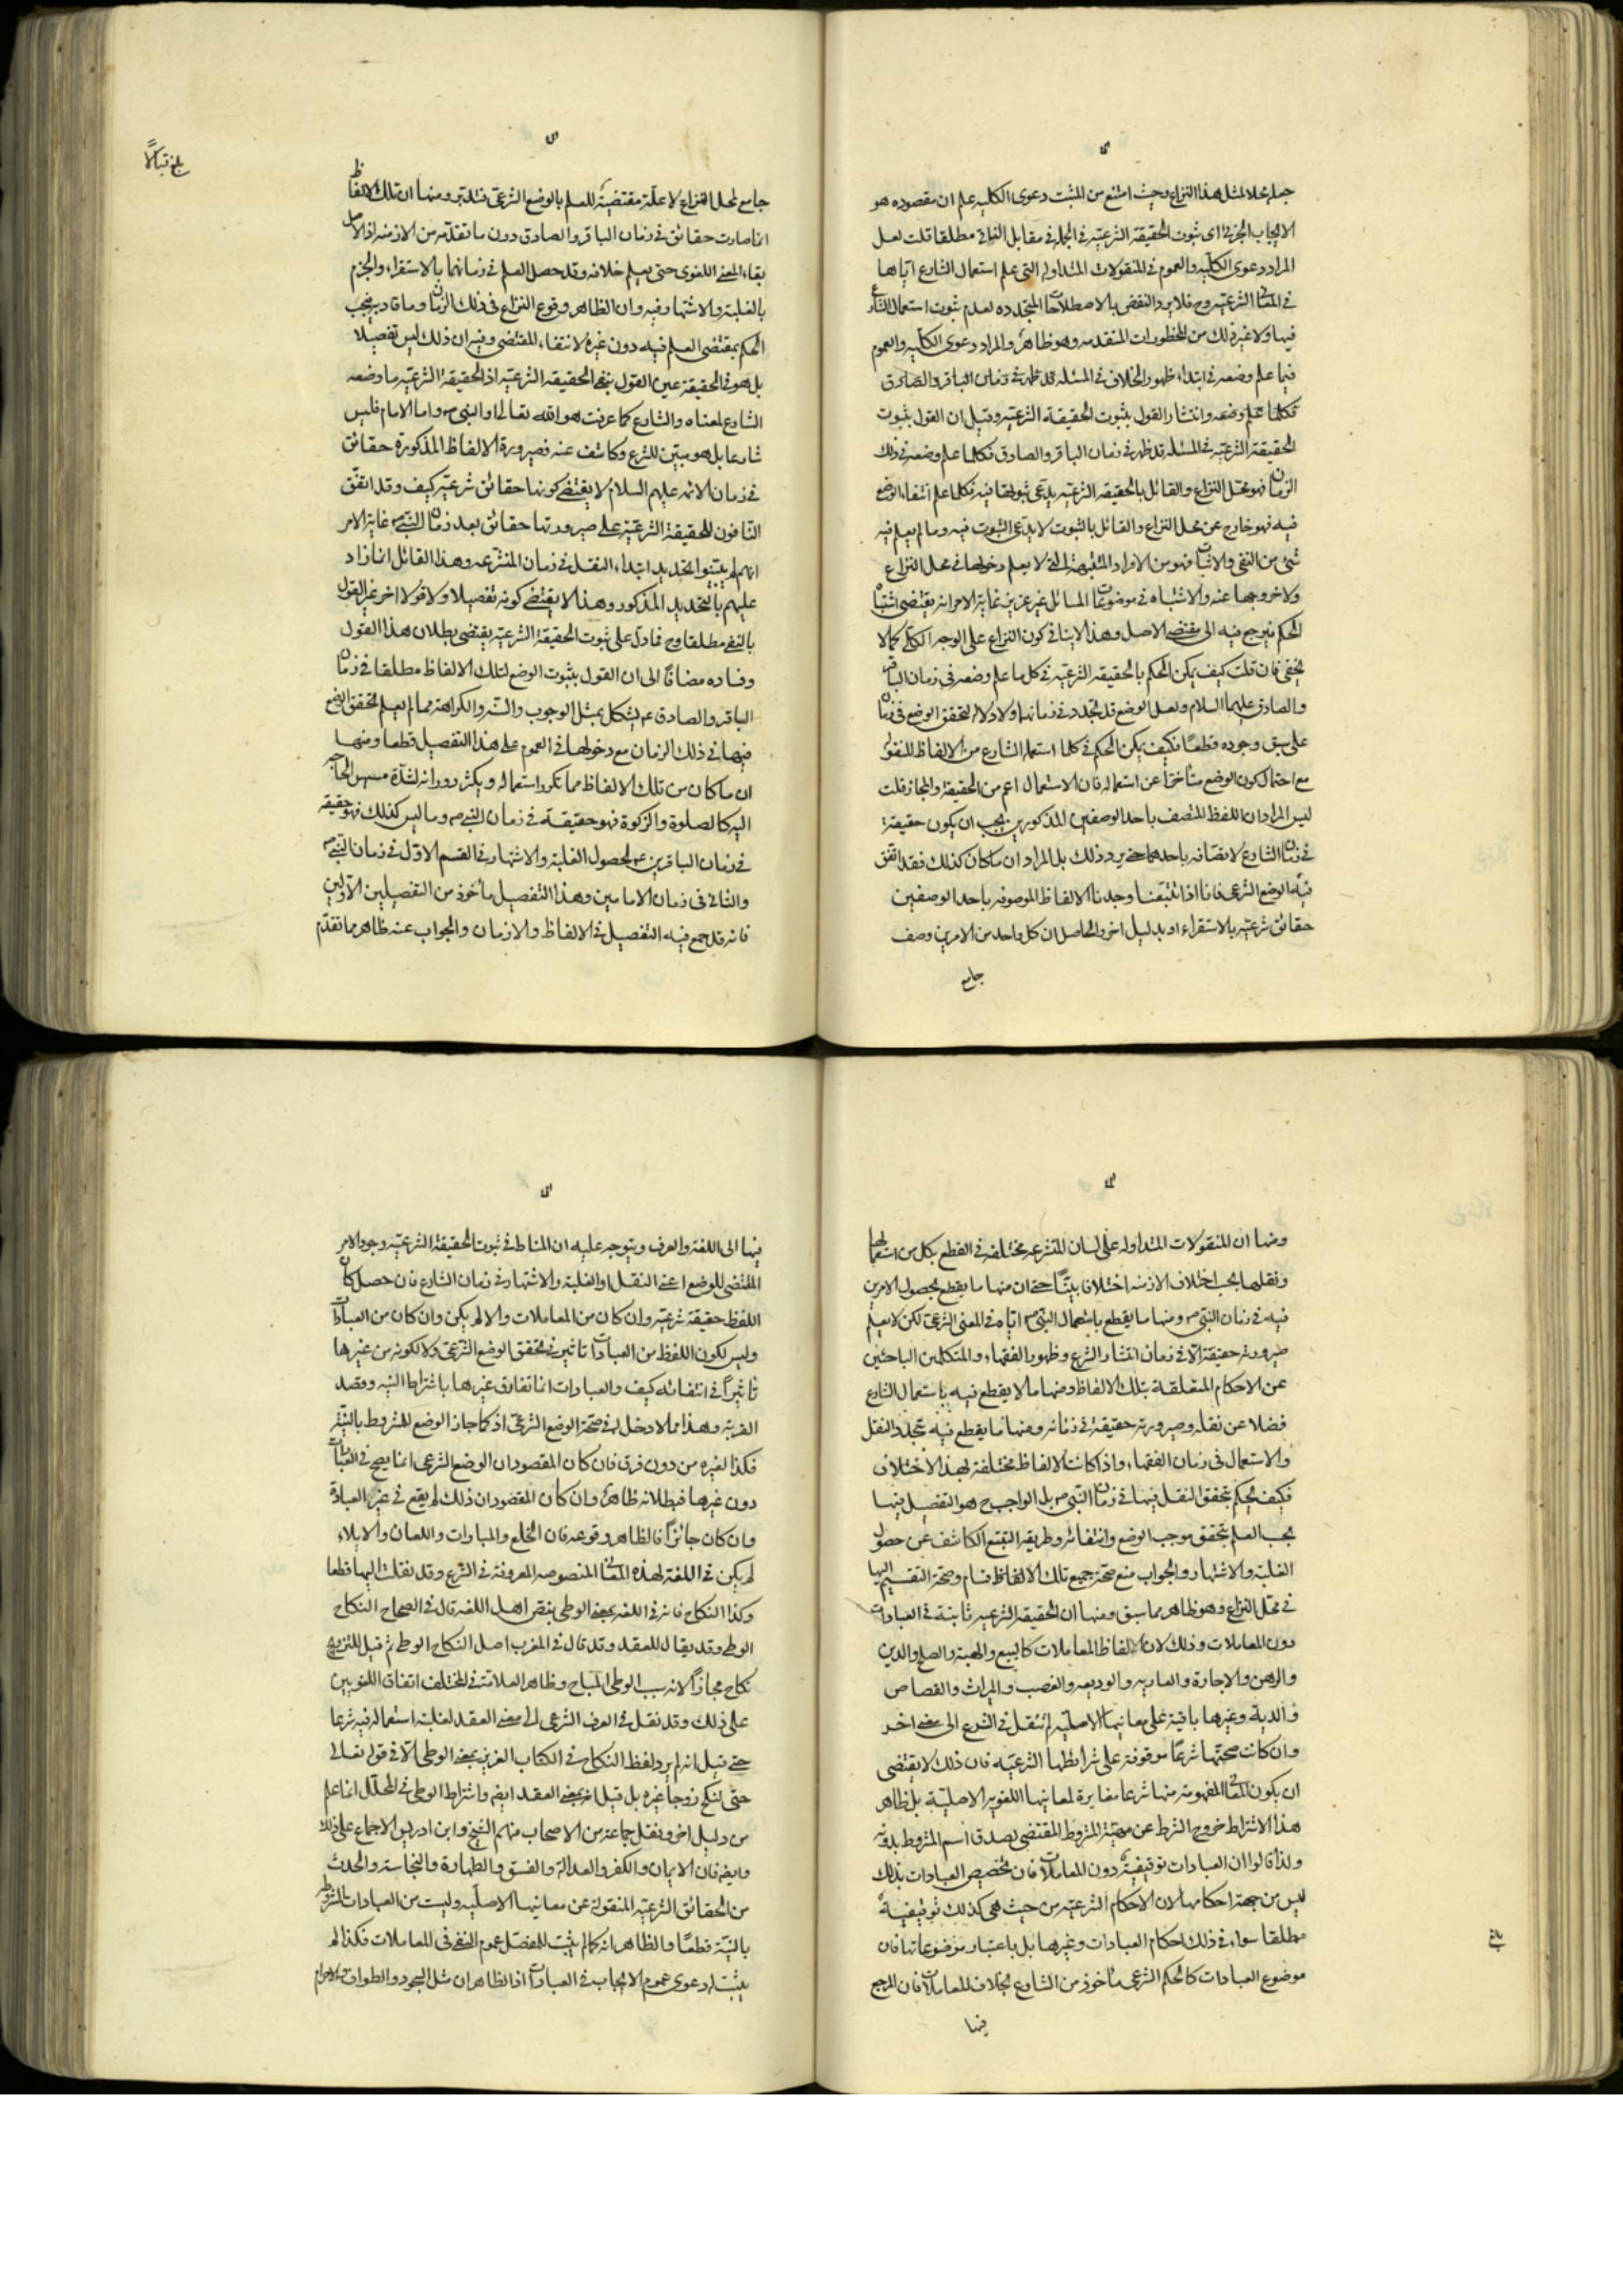 جملة محلا لمثل هذا النزاع وحيث امتنع من المثبت دعوى الكلية علم ان مقصوده هو
الايجاب الجزئي اى ثبوت الحقيقة الشرعية في الجملة في مقابل النافي مطلقا قلت لعل
المراد دعوى الكلية والعموم في المنقولات المتداولة التي علم استعمال الشارع اياها
في المعاني الشرعية وح فلا يرد النقض بالاصطلاحات المتجددة لعدم ثبوت استعمال الشارع
فيها ولا غير ذلك من المحظورات المتقدمة وهو ظاهر والمراد دعوى الكلية والعموم
فيما علم وضعه في ابتداء ظهور الخلاف في المسئلة قد ظهر في زمان الباقر والصادق
فكلما علم وضعه وانتشار القول بثبوت الحقيقة الشرعية وقيل ان القول بثبوت
الحقيقة الشرعية في المسئلة قد ظهر في زمان الباقر والصادق فكلما علم وضعه في ذلك
الزمان فهو محل النزاع والقائل بالحقيقة الشرعية يدعي ثبوتها فيه فكلما علم انتفاء الوضع
فيه فهو خارج عن محل النزاع والقائل بالثبوت لا يدعى الثبوت فيه وما لم يعلم فيه
شئ من النفي والاثبات فهو من الافراد المشتبهة التي لا يعلم دخولها في محل النزاع
ولا خروجها عنه والاشتباه في موضوعات المسائل غير عزيز غاية الامر انه يقتضى اشتباه
الحكم فيرجع فيه الى مقتضى الاصل وهذا لا ينافي كون النزاع على الوجه الكلي كما لا
يخفى فان قلت كيف يمكن الحكم بالحقيقة الشرعية في كل ما علم وضعه في زمان الباقر
والصادق عليهما السلام ولعل الوضع قد تجدد في زمانهما ولا دلالة لتحقق الوضع في زمان
على سبق وجوده قطعا فكيف يمكن الحكم في كلما استعمله الشارع من الالفاظ المنقولة
مع احتمال كون الوضع متأخرا عن استعماله فان الاستعمال اعم من الحقيقة والمجاز قلت
ليس المراد ان اللفظ المتصف باحد الوصفين المذكورين يجب ان يكون حقيقة
في زمان الشارع لاتصافه باحدهما حتى يرد ذلك بل المراد ان ما كان كذلك فقد اتفق
فيه الوضع الشرعي فانا اذا تتبعنا وجدنا الالفاظ الموصوفة باحد الوصفين
حقائق شرعية بالاستقراء او بدليل اخر والحاصل ان كل واحد من الامرين وصف
جامع
بلغ قبالا
جامع لمحل النزاع لا علة مقتضية للعلم بالوضع الشرعي فتدبر ومنها ان تلك الالفاظ
انما صارت حقائق في زمان الباقر والصادق دون ما تقدمه من الازمنة اذ الاصل
بقاء المعنى اللغوى حتى يعلم خلافه وقد حصل العلم في زمانهما بالاستقراء والجزم
بالغلبة والاشتهار فيه وان الظاهر وقوع النزاع في ذلك الزمان وما قاربه فيجب
الحكم بمقتضى العلم فيه دون غيره لانتفاء المقتضى وفيه ان ذلك ليس تفصيلا
بل هو في الحقيقة عين القول بنفي الحقيقة الشرعية اذ الحقيقة الشرعية ما وضعه
الشارع لمعناه والشارع كما عرفت هو الله تعالى او النبي ص واما الامام فليس
شارعا بل هو مبين للشرع وكاشف عنه فصيرورة الالفاظ المذكورة حقائق
في زمان الائمة عليهم السلام لا يقتضي كونها حقائق شرعية كيف وقد اتفق
النافون للحقيقة الشرعية على صيرورتها حقائق بعد زمان النبي ص غاية الامر
انهم لم يثبتوا تحديد ابتداء النقل في زمان المتشرعة وهذا القائل انما زاد
عليهم بالتحديد المذكور وهذا لا يقتضي كونه تفصيلا ولا قولا اخر غير القول
بالنفي مطلقا وح فما دل على ثبوت الحقيقة الشرعية يقتضى بطلان هذا القول
وفساده مضافا الى ان القول بثبوت الوضع لتلك الالفاظ مطلقا في زمان
الباقر والصادق ع يشكل بمثل الوجوب والسنة والكراهة مما لم يعلم تحقق الوضع
فيها في ذلك الزمان مع دخولها في العموم على هذا التفصيل قطعا ومنها
ان ما كان من تلك الالفاظ مما تكرر استعماله ويكثر دورانه لشدة مسيس الحاجة
اليه كالصلوة والزكوة فهو حقيقة في زمان النبي ص وما ليس كذلك فهو حقيقة
في زمان الباقرين ع لحصول الغلبة والاشتهار في القسم الاول في زمان النبي ص
والثاني في زمان الامامين وهذا التفصيل مأخوذ من التفصيلين الاولين
فانه قد جمع فيه التفصيل في الالفاظ والازمان والجواب عنه ظاهر مما تقدم
ومنها ان المنقولات المتداولة على لسان المتشرعة مختلفة في القطع بكل من استعمالها
ونقلها بحسب اختلاف الازمنة اختلافا بينا حتى ان منها ما يقطع بحصول الامرين
فيه في زمان النبي ص ومنها ما يقطع باستعمال النبي ص اياه في المعنى الشرعي لكن لا يعلم
صيرورته حقيقة الا في زمان انتشار الشرع وظهور الفقهاء والمتكلمين الباحثين
عن الاحكام المتعلقة بتلك الالفاظ ومنها ما لا يقطع فيه باستعمال الشارع
فضلا عن نقله وصيرورته حقيقة في زمانه ومنها ما يقطع فيه بتجدد النقل
والاستعمال في زمان الفقهاء واذا كانت الالفاظ مختلفة بهذا الاختلاف
فكيف يحكم بتحقق النقل فيها في زمان النبي ص بل الواجب ح هو التفصيل فيها
بحسب العلم بتحقق موجب الوضع وانتفائه وطريقه التتبع الكاشف عن حصول
الغلبة والاشتهار والجواب منع صحة جميع تلك الاقسام وصحة التقسيم اليها
في محل النزاع وهو ظاهر مما سبق ومنها ان الحقيقة الشرعية ثابتة في العبادات
دون المعاملات وذلك لان الفاظ المعاملات كالبيع والهبة والصلح والدين
والرهن والاجارة والعارية والوديعة والغصب والميراث والقصاص
والدية وغيرها باقية على معانيها الاصلية لم تنقل في الشرع الى معنى اخر
وان كانت صحتها شرعا موقوفة على شرائطها الشرعية فان ذلك لا يقتضى
ان يكون المعاني المفهومة منها شرعا مغايرة لمعانيها اللغوية الاصلية بل ظاهر
هذا الاشتراط خروج الشرط عن مهية المشروط المقتضى بصدق اسم المشروط بدونه
ولذا قالوا ان العبادات توقيفية دون المعاملات فان تخصيص العبادات بذلك
ليس من جهة احكامها لان الاحكام الشرعية من حيث هي كذلك توقيفية
مطلقا سواء في ذلك احكام العبادات وغيرها بل باعتبار موضوعاتها فان
موضوع العبادات كالحكم الشرعي مأخوذ من الشارع بخلاف المعاملات فان المرجع
فيها
فيها الى اللغة والعرف ويتوجه عليه ان المناط في ثبوت الحقيقة الشرعية وجود الامر
المقتضى للوضع اعني النقل او الغلبة والاشتهار في زمان الشارع فان حصل كان
اللفظ حقيقة شرعية وان كان من المعاملات والا لم يكن وان كان من العبادات
وليس لكون اللفظ من العبادات تاثير في تحقق الوضع الشرعي ولا لكونه من غيرها
تأثيرا في انتفائه كيف والعبادات انما تفارق غيرها باشتراط النية وقصد
القربة وهذا مما لا دخل له في صحة الوضع الشرعي اذ كما جاز الوضع للمشروط بالنية
فكذا لغيره من دون فرق فان كان المقصود ان الوضع الشرعي انما يصح في العبادات
دون غيرها فبطلانه ظاهر وان كان المقصود ان ذلك لم يقع في غير العبادة
وان كان جائزا فالظاهر وقوعه فان الخلع والمبارات واللعان والايلاء
لم يكن في اللغة لهذه المعاني المنصوصة المعروفة في الشرع وقد نقلت اليها قطعا
وكذا النكاح فانه في اللغة بمعنى الوطي بنص اهل اللغة قال في الصحاح النكاح
الوطي وقد يقال للعقد وقد قال في المغرب اصل النكاح الوطي ثم قيل للتزويج
نكاح مجازا لانه سبب الوطي المباح وظاهر العلامة في المختلف اتفاق اللغويين
على ذلك وقد نقل في العرف الشرعي الى معنى العقد لغلبة استعماله فيه شرعا
حتى قيل انه لم يرد لفظ النكاح في الكتاب العزيز بمعنى الوطي الا في قوله تعالى
حتى تنكح زوجا غيره بل قيل انه بمعنى العقد ايضا واشتراط الوطي في المحلل انما علم
من دليل اخر ونقل جماعة من الاصحاب منهم الشيخ وابن ادريس الاجماع على ذلك
وايضا فان الايمان والكفر والعدالة والفسق والطهارة والنجاسة والحدث
من الحقائق الشرعية المنقولة عن معانيها الاصلية وليست من العبادات المشروطة
بالنية قطعا والظاهر انه كما لم يثبت للمفصل عموم النفي في المعاملات فكذا لم
يثبت له دعوى عموم الايجاب في العبادات اذ الظاهر ان مثل السجود والطواف والاحرام